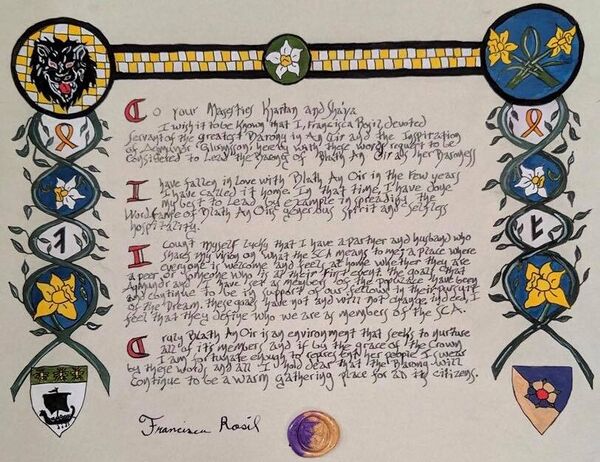 To your Majesties Kjartan and Shaya
I wish it to be known that I, Francisca Rosil, devoted
servant of the greatest Barony in An Tir and the Inspiration
of hereby with these words request to be
considered to Lead the Barony of Blath An Oir as her Baroness
I have fallen in Love with Blath An Oir in the few years
I have called it home. In that time, I have done
my best to Lead by example in spreading the
Word fame of Blath An Oirs generous spirit and selfless
hospitality.
I count myself Lucky that I have a partner and husband who
shares my vision on what the SCA means to me; a place where
everyone is welcome and feels at home whether they are
a peer or someone who is at their first event. the goals that
and I have set as members of the populace have been
and continue to be in support of our fellows in their pursuit
of the Dream, these goals have not and will not change indeed I
feel that they define who we are as members of the SCA.
Truly Blath An Oir is an environment that seeks to nurture
all of its members and if by the grace of the Crown
I am fortunate enough to represent her people I swear
by these words and all I hold dear that the Barony will
continue to be a warm gathering place for all its citizens.
Francisca Rosil